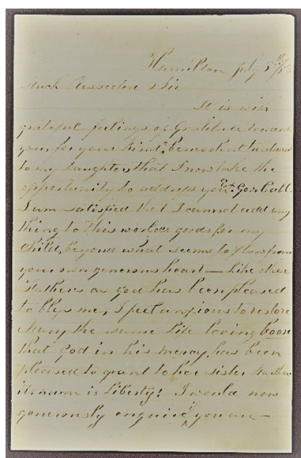 Hamilton July 5th
Much Esteemed Sir
It is with
grateful feelings of Gratitude toward
you for your kind & benevolent
to my daughter, that I now take the
opportunity to address you.
I am satisfied that I cannot add any
thing to this worlds goods for my
child, beyond what seems to flow from
your own generous heart — like
as God has been pleased
to bless me, I feel anxious to restore
the same life loving boon
that God in his mercy has been
pleased to grant to her sister
name is Liberty! I would now
generously enquire if you are —